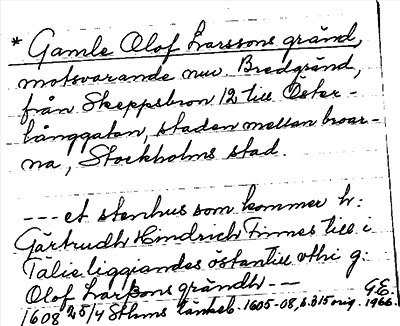 * Gamle Olof Larssons gränd,
motsvarande nuv. Bredgränd,
från Skeppsbron 12 till Öster-
långgatan, staden mellan broar-
na, Stockholms stad.
--- et stenhus som kommer h:
Gärtrudh Hindrich Finnes till i
Tälie liggiandes östantill uthi g:
Olof Larßons grändh ---
G.E.
1608 25/4 Sthms tänkeb. 1605-08, s. 315 orig. 1966.